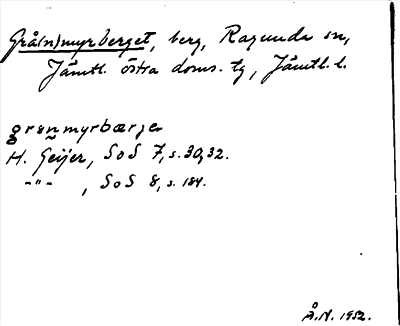 Grå(n)myrberget, berg, Ragunda sn,
Jämtl. östra doms. tg, Jämtl. l.
grønmyrbærjer
H. Geijer, SoS 7, s. 30, 32.
-"- , SoS 8, s. 184.
Å.N. 1952.